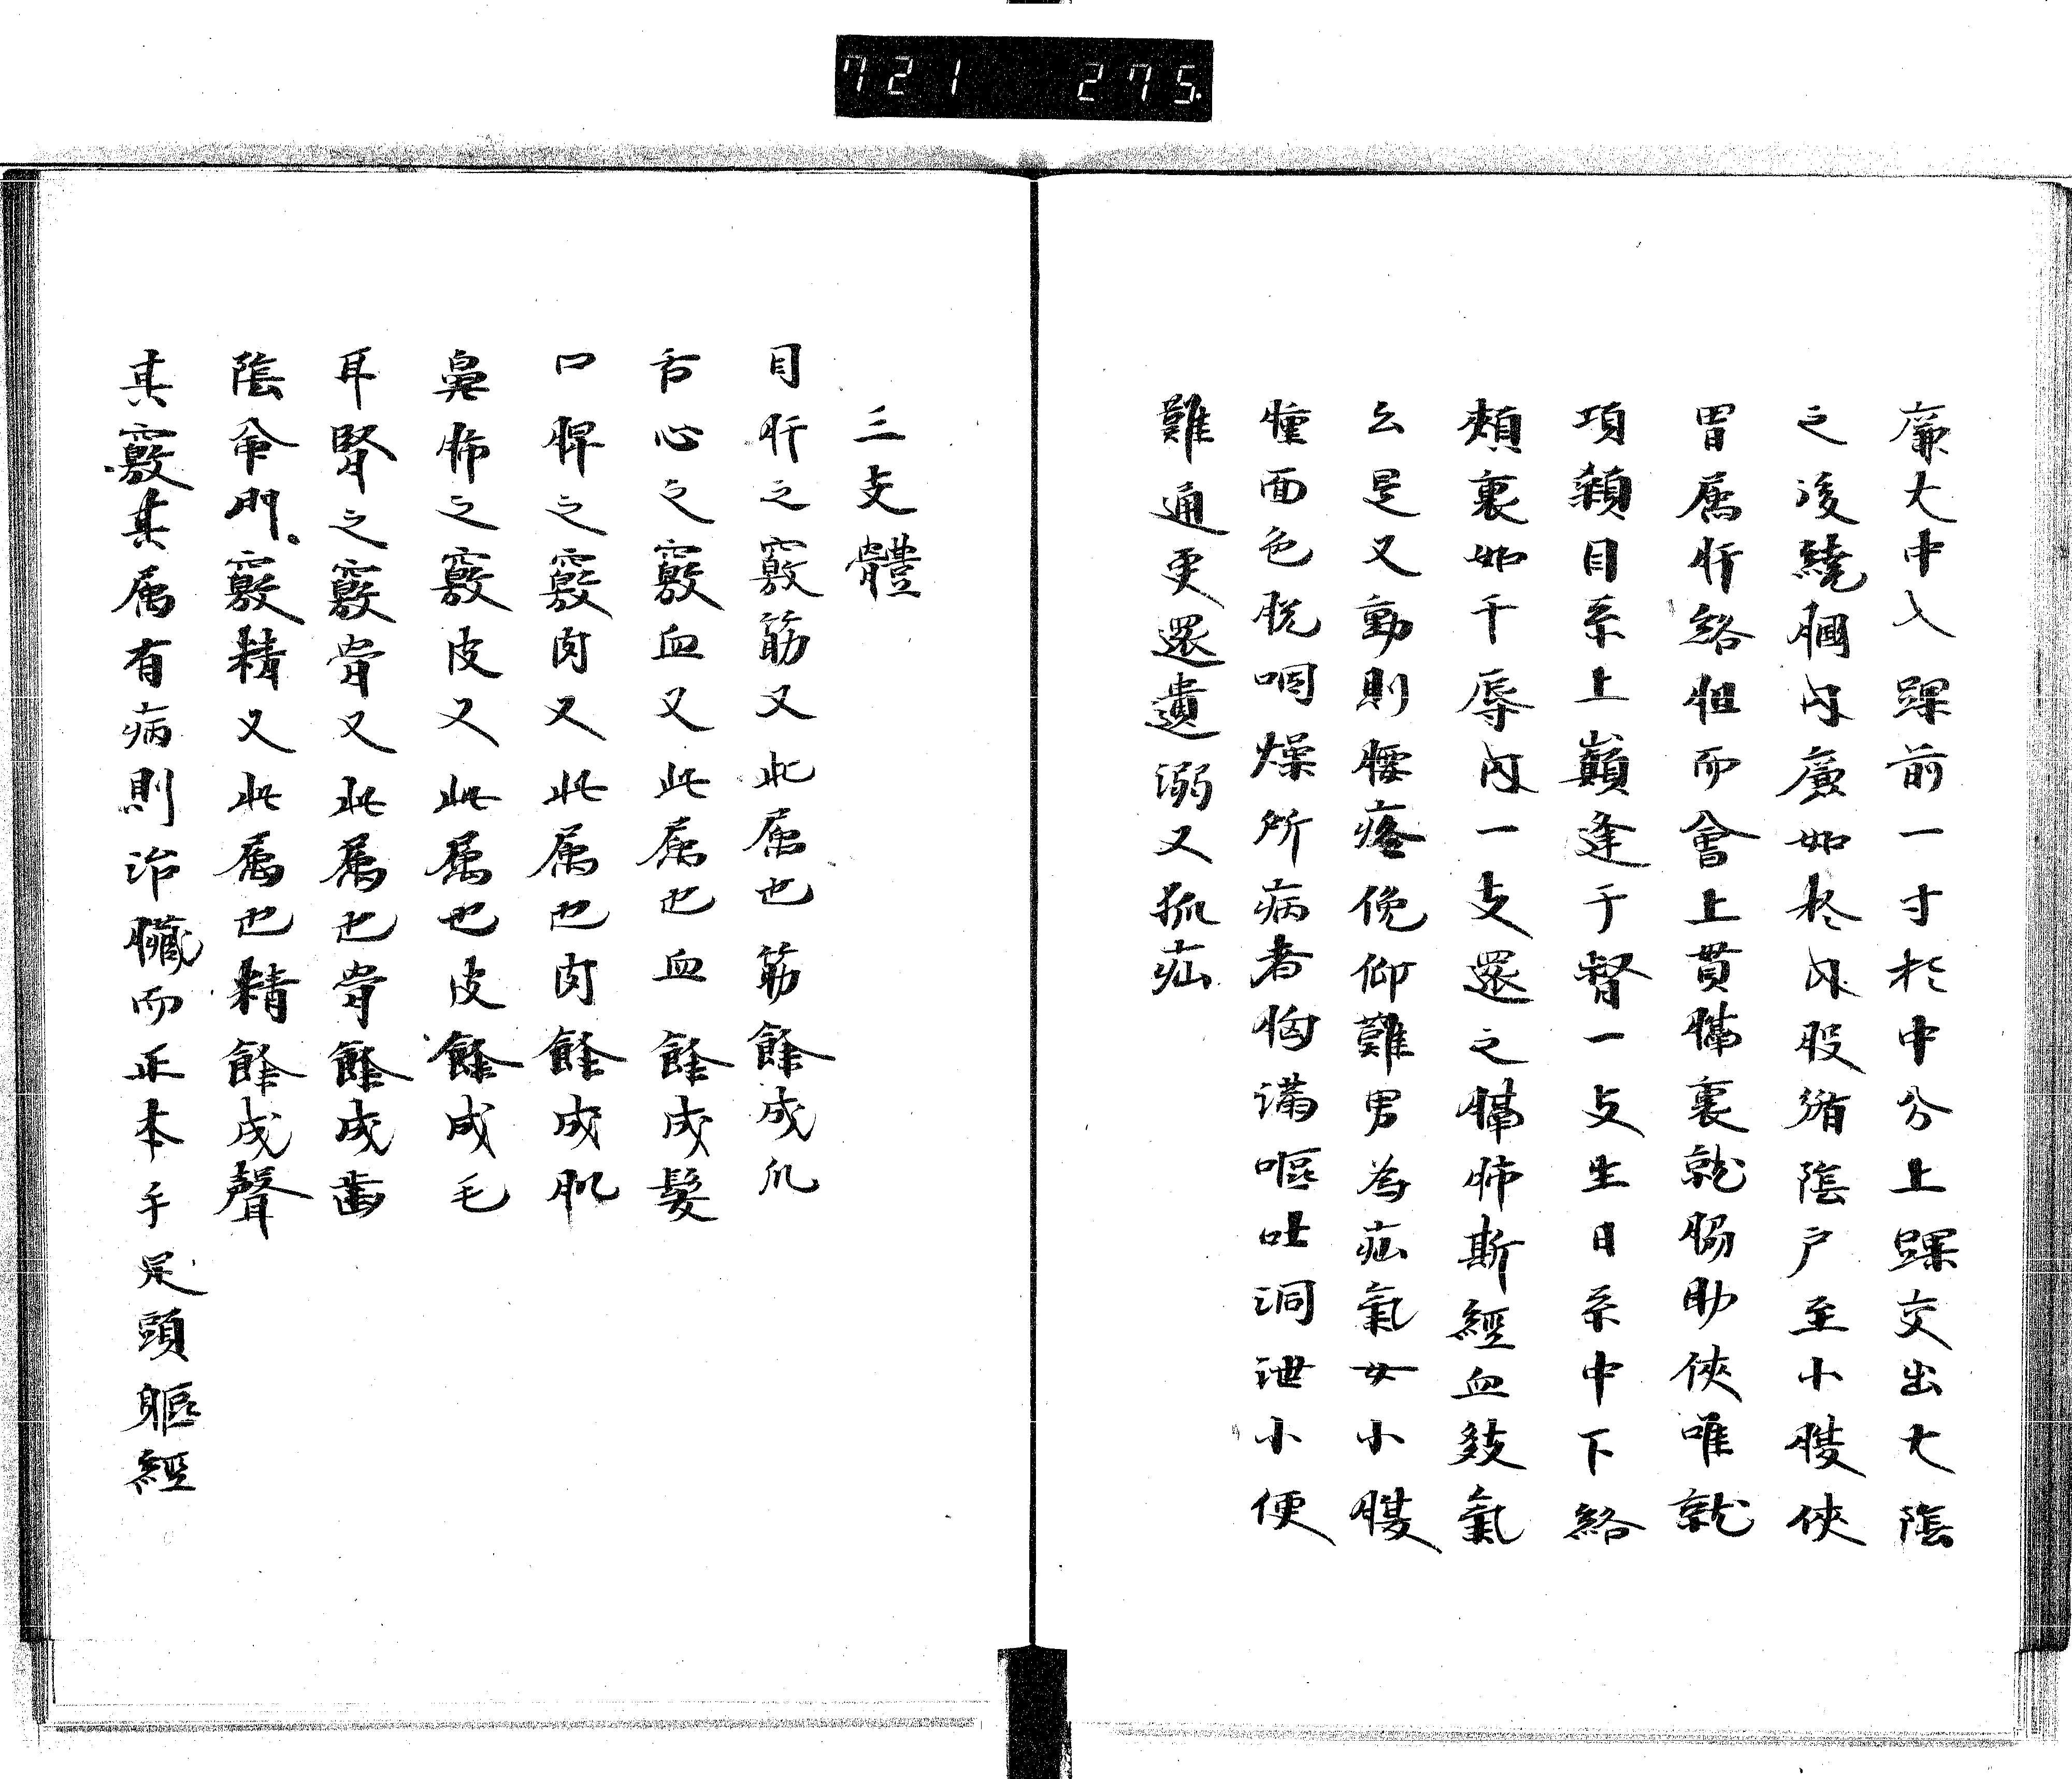 721 275.
廉大中入踝前一寸於中分上踝交出大陰
之後繞膕内廉如於内股循陰戸至小腹俠
胃属肝絡胆而會上貫膈裏就腸肋俠唯就
項顙目系上巓逢于督一支生目系中下絡
頬裏如千辱内一支還之膈肺斯經血発氣
云是又動則腰疼俛仰難男為疝氣女小腹
腫面色脱咽燥所病者胸満嘔吐洞泄小便
難通更還遺溺又狐疝
三支體
目肝之竅筋又此属也筋餘成爪
舌心之竅血又此属也血餘成髪
口脾之竅肉又此属也肉餘成肌
鼻肺之竅皮又此属也皮餘成毛
耳腎之竅骨又此属也骨餘成歯
陰命門竅精又此属也精餘成聲
其竅其属有病則治臓而正本手足頭軀經